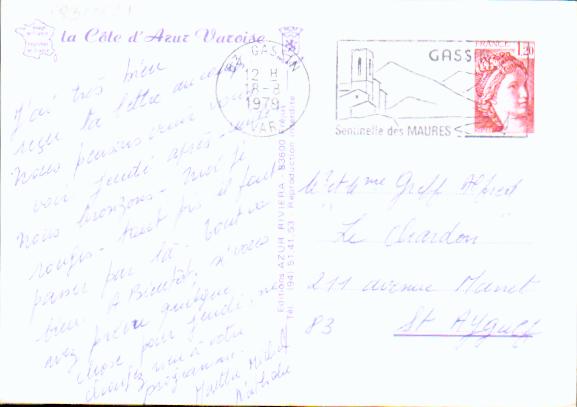 la Côte d'Azur Varoise
J'ai très bien
reçu ta lettre
Nous pensons venir vous
voir jeudi après-midi
Nous bronzons. Moi je
rougis. Tant pis il faut
passer par là. Tout va
bien. A Bientôt, si vous
avez prévu quelque
chose pour jeudi, ne
changez rien à votre
programme.
83 GASSIN
12 H
8-8
1979
VAR
GASSIN
Sentinelle des MAURES
FRANCE
1,20
Editions AZUR RIVIERA - 83600
Tél. (94) 51.41.53 Reproduction interdite
Mr et Mme Greff Alfred
"Le Chardon"
211 avenue Manet
83 St Aygulf